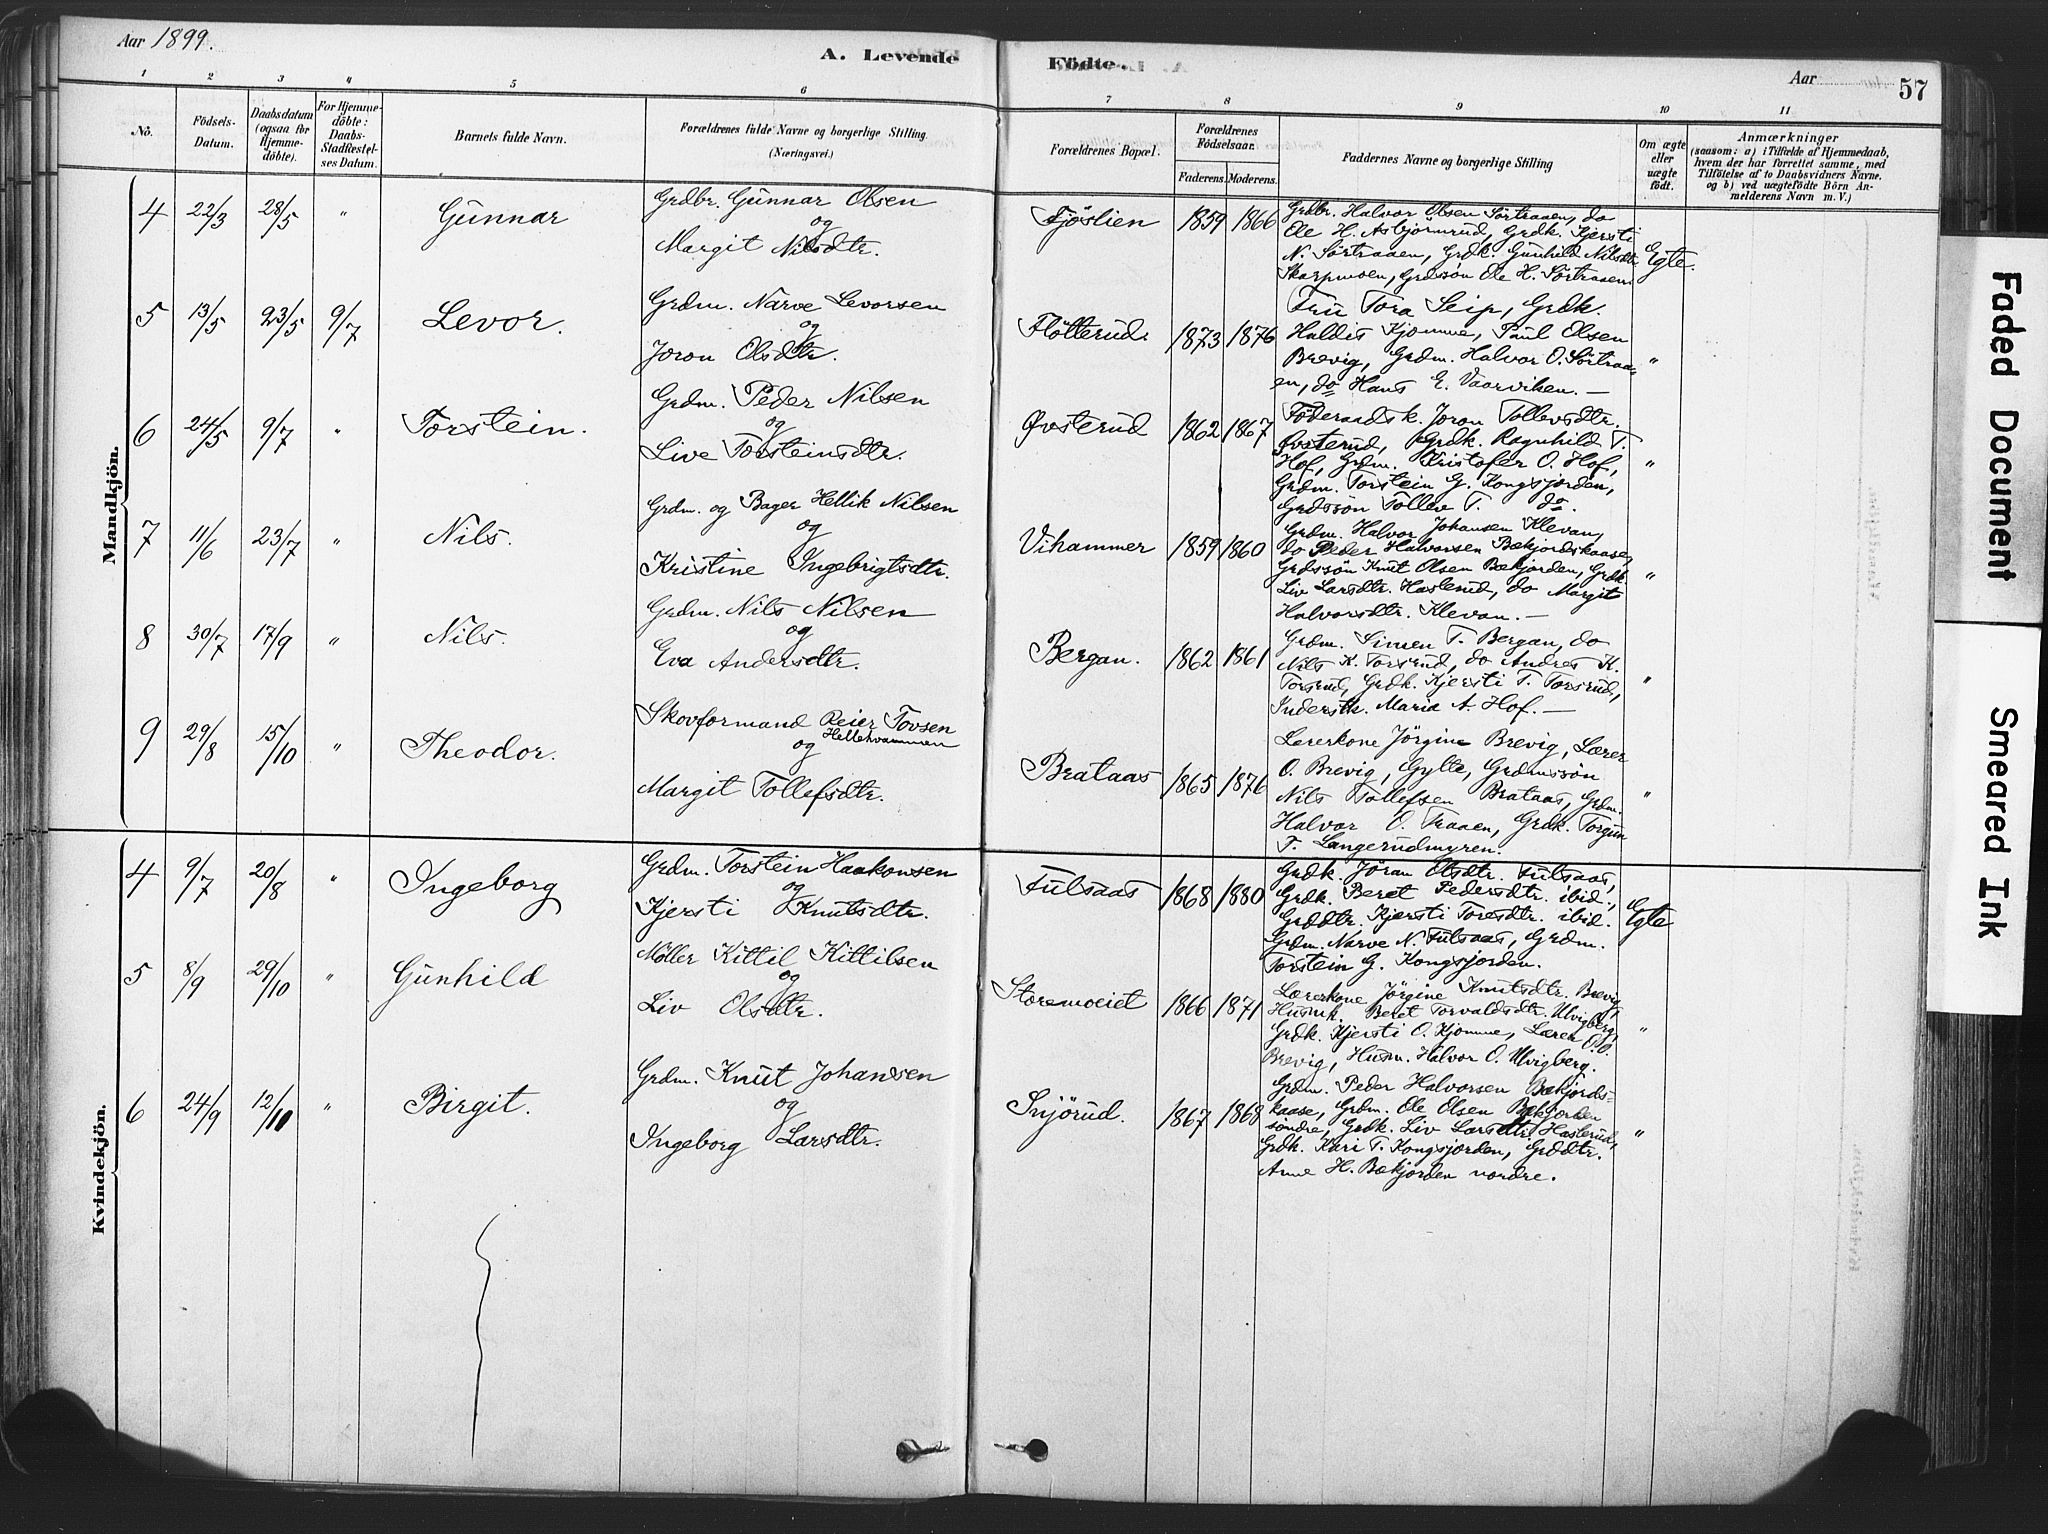 Aar 1899.
A. Levende
Födte.
Aar
57
1 2 3 " 5 6 7 8 9 10 11
No.
Födsels-
Datum.
Daabsdatum
(ogsaa for
Hjemme-
döbte).
For Hjemme-
döbte:
Daabs-
Stadfestel-
ses Datum.
Barnets fulde Navn.
Forældrenes fulde Navne og borgerlige Stilling.
(Næringsvei.)
Forældrenes Bopæl.
Forældrenes
Födselsaar.
Faderens. Moderens.
Faddernes Navne og borgerlige Stilling
Om ægte
eller
uægte
födt.
Anmærkninger
(saasom: a) i Tilfælde af Hjemmedaab,
hvem der har forrettet samme, med
Tilföielse af to Daabsvidners Navne.
og b) ved uægtefödte Börn An-
melderens Navn m.V.)
Mandkjön.
4 22/3 28/5 " Gunnar
Grdbr. Gunnar Olsen
og
Margit Nilsdtr.
Fjöslien 1859 1866
Grdbr. Halvor Olsen Sörtraaen, do
Ole H. Asbjörnrud, Grdk. Kjersti
N. Sörtraaen, Grdk. Gunhild Nilsdtr
Skarpmoen, Grdssön Ole H. Sörtraaen.
Egte.
5 13/5 23/5 9/7 Levor.
Grdm. Narve Levorsen
og
Joron Olsdtr.
Flötterud. 1873 1876
Fru Tora Seip, Grdk.
Haldis Kjomme, Paul Olsen
Brevig, Grdm. Halvor O. Sörtraa-
en, do Hans E. Vaarviken. —
"
6 24/5 9/7 " Torstein.
Grdm. Peder Nilsen
og
Live Torsteinsdtr.
Øvsterud 1862 1867
Föderaadsk. Joron Tollevsdtr.
Øvsterud, Grdk. Ragnhild T.
Hof, Grdm. Kristofer O. Hof,
Grdm. Torstein G. Kongsjorden,
Grdssön Tollev T. do.
"
7 11/6 23/7 " Nils.
Grdm. og Bager Hellik Nilsen
og
Kristine Ingebrigtsdtr.
Vihammer 1859 1860
Grdm. Halvor Johansen Klevan,
do Peder Halvorsen Bækjordskaase,
Grdssön Knut Olsen Bækjorden, Grdk.
Liv Larsdtr. Haslerud, do Margit
Halvorsdtr. Klevan. —
"
8 30/7 17/9 " Nils.
Grdm. Nils Nilsen
og
Eva Andersdtr.
Bergan. 1862 1861
Grdm. Simen T. Bergan, do
Nils K. Torsrud, do Andres K.
Torsrud, Grdk. Kjersti T. Torsrud,
Inderstk. Maria A. Hof. —
"
9 29/8 15/10 " Theodor.
Skovformand Reier Tovsen
Hellekvammen
og
Margit Tollefsdtr.
Brataas 1865 1876
Lærerkone Jörgine Brevig, Lærer
O. Brevig, Gylte, Grdmssön
Nils Tollefsen Brataas, Grdm.
Halvor O. Traaen, Grdk. Torgun
T. Langerudmyren.
"
Kvindekjön.
4 9/7 20/8 " Ingeborg
Grdm. Torstein Haakonsen
og
Kjersti Knutsdtr.
Fulsaas 1868 1880
Grdk. Jöran Olsdtr. Fulsaas,
Grdk. Beret Pedersdtr. ibid.,
Grddtr. Kjersti Toresdtr. ibid.
Grdm. Narve N. Fulsaas, Grdm.
Torstein G. Kongsjorden.
Egte
5 8/9 29/10 " Gunhild
Møller Kittil Kittilsen
og
Liv Olsdtr.
Storemoeiet 1866 1871
Lærerkone Jörgine Knutsdtr. Brevig,
Husmk. Beret Torvaldsdtr. Ulvigberg,
Grdk. Kjersti O. Kjomme, Lærer O. O.
Brevig, Husm. Halvor O. Ulvigberg.
"
6 24/9 12/10 " Birgit.
Grdm. Knut Johansen
og
Ingeborg Larsdtr.
Snjörud. 1867 1868
Grdm. Peder Halvorsen Bækjords-
kaase, Grdm. Ole Olsen Bækjorden
söndre, Grdk. Liv Larsdtr. Haslerud,
Grdk. Kari T. Kongsjorden, Grddtr.
Anne H. Bækjorden nordre.
"
Faded Document
Smeared Ink